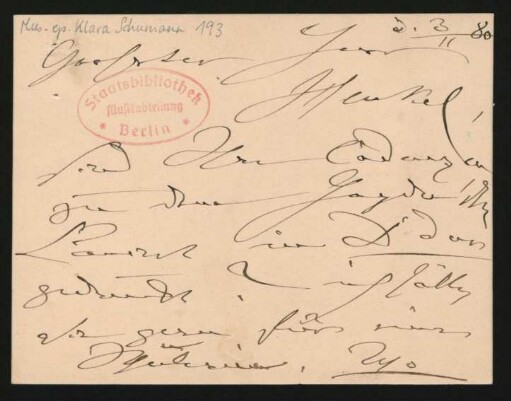 Mus. ep. Klara Schumann 193
d. 3/11 80
Geehrter Herr
Henkel,
Staatsbibliothek
Musikabteilung
Berlin
sind Ihre Cadenzen
zu dem Haydn'schen
in D dur
gedruckt? ich hätte
sie gern für eine
Schülerin.